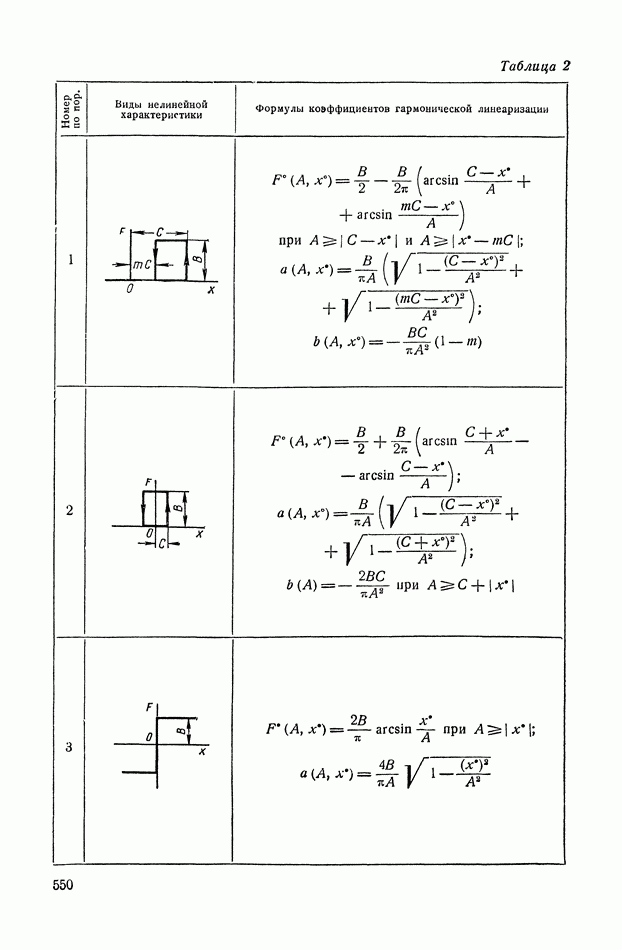 Таблица 2
Номер по пор.
Виды нелинейной характеристики
Формулы коэффициентов гармонической линеаризации
1
F
C
mC
B
0
x
F° (A, x°) = B/2 — B/2π (arcsin (C — x°)/A +
+ arcsin (mC — x°)/A)
при A ⩾ | C — x° | и A ⩾ | x° — mC |;
a (A, x°) = B/πA (√(1 — (C — x°)²/A²) +
+ √(1 — (mC — x°)²/A²));
b (A, x°) = — BC/πA² (1 — m)
2
F
B
0
x
C
F° (A, x°) = B/2 + B/2π (arcsin (C + x°)/A —
— arcsin (C — x°)/A);
a (A, x°) = B/πA (√(1 — (C — x°)²/A²) +
+ √(1 — (C + x°)²/A²));
b (A) = — 2BC/πA² при A ⩾ C + | x° |
3
F
0
B
x
F° (A, x°) = 2B/π arcsin x°/A при A ⩾ | x° |;
a (A, x°) = 4B/πA √(1 — (x°)²/A²)
550